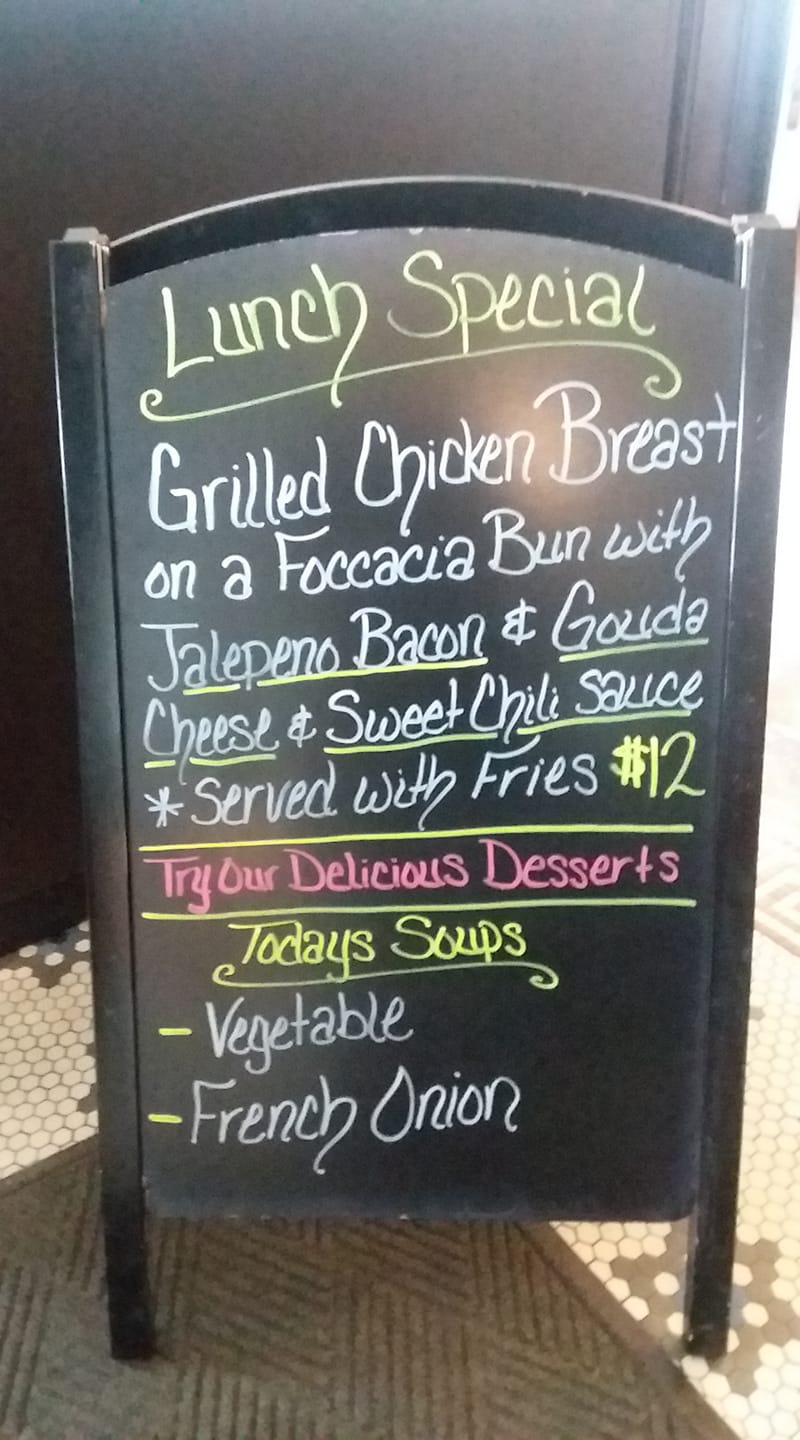 Lunch Special
Grilled Chicken Breast
on a Foccacia Bun with
Jalepeno Bacon & Gouda
Cheese & Sweet Chili Sauce
* Served with Fries $12
Try Our Delicious Desserts
Todays Soups
- Vegetable
- French Onion